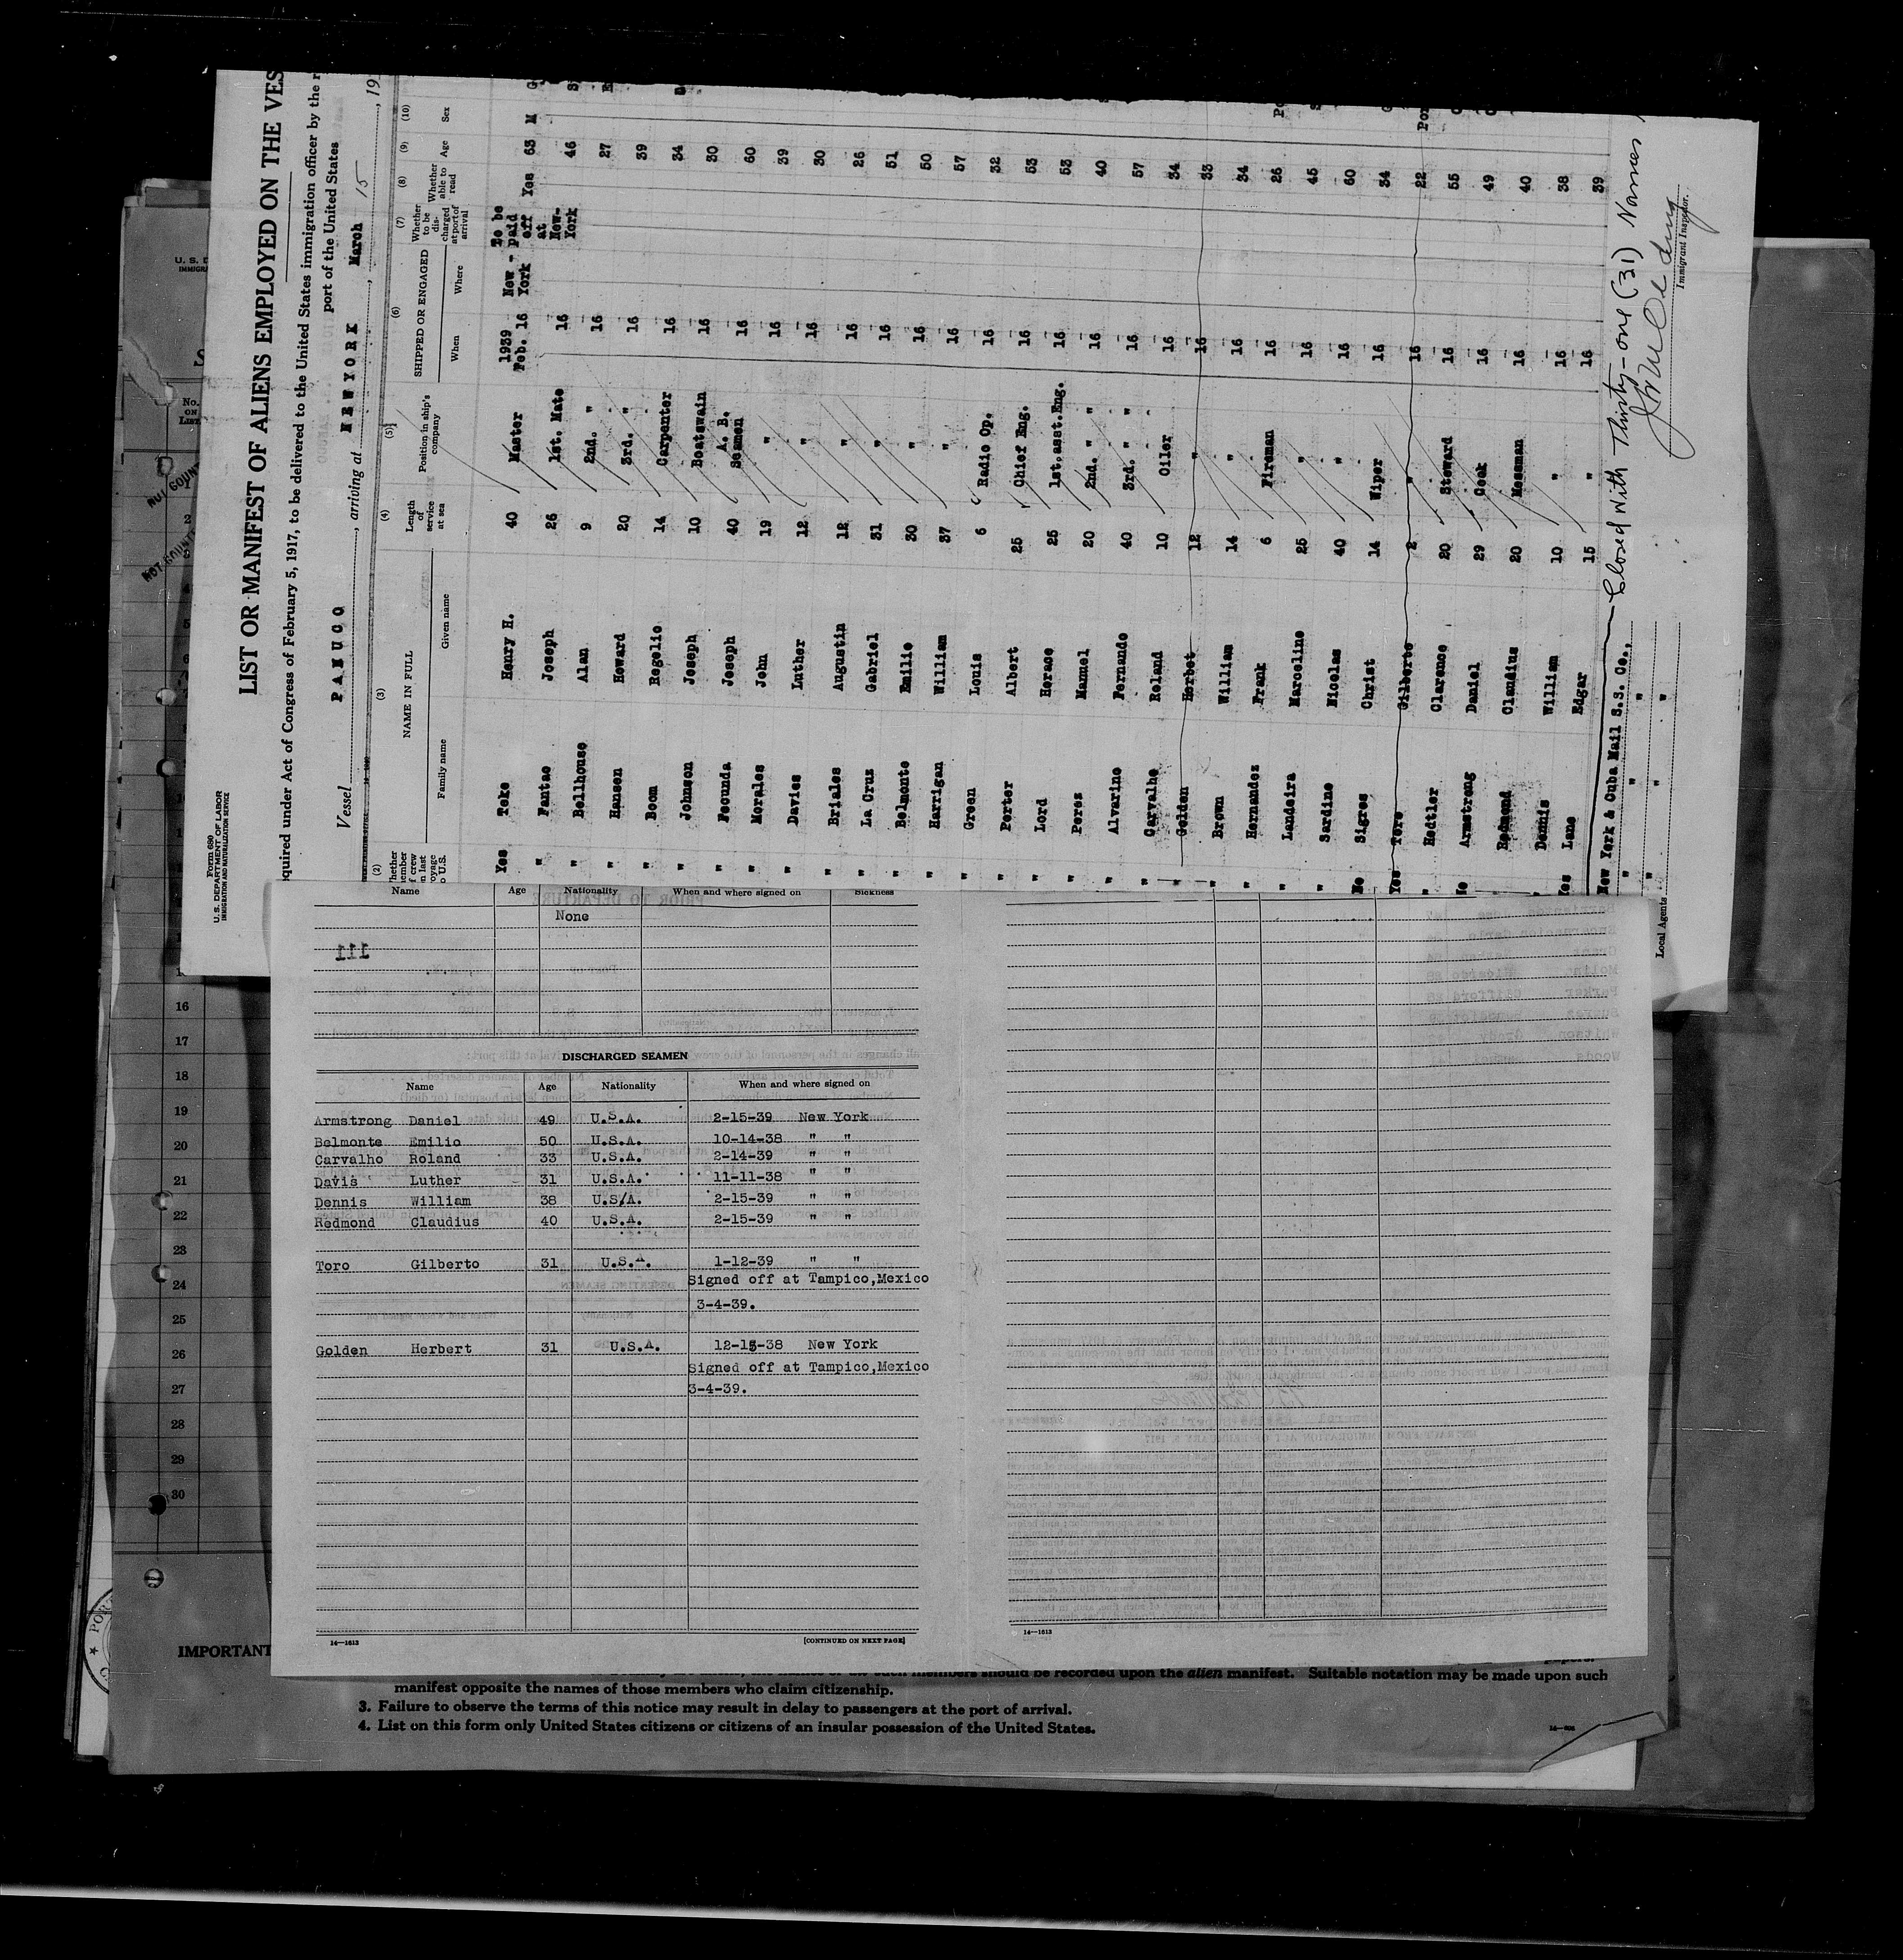 Form 680
U. S. DEPARTMENT OF LABOR
IMMIGRATION AND NATURALIZATION SERVICE
LIST OR MANIFEST OF ALIENS EMPLOYED ON THE VES
equired under Act of Congress of February 5, 1917, to be delivered to the United States immigration officer by the r
port of the United States
Vessel PANUCO, arriving at NEW YORK, March 15, 19
(2) (3) (4) (5) (6) (7) (8) (9) (10)
NAME IN FULL Family name Given name Length of service at sea Position in ship's company SHIPPED OR ENGAGED When Where Whether to be discharged at port of arrival Whether able to read Age Sex
Yes Teke Henry H. 40 Master 1939 Feb. 16 New - York To be paid off at New-York Yes 63 M
" Fantao Joseph 26 1st. Mate 16 46
" Bellhouse Alan 9 2nd. " 16 27
" Hansen Howard 20 3rd. " 16 39
" Boom Rogelio 14 Carpenter 16 34
" Johnson Joseph 10 Boatswain 16 30
" Fecunda Joseph 40 A. B. Seamen 16 60
" Morales John 19 " 16 39
" Davies Luther 12 " 16 30
" Briales Augustin 12 " 16 26
" La Cruz Gabriel 31 " 16 51
" Belmonte Emilio 30 " 16 50
" Harrigan William 37 " 16 57
" Green Louis 6 Radio Op. 16 32
" Porter Albert 25 Chief Eng. 16 53
" Lord Horace 25 1st.asst.Eng. 16 53
" Perez Manuel 20 2nd. " " 16 40
" Alvarino Fernando 40 3rd. " " 16 57
" Carvalho Roland 10 Oiler 16 34
" Golden Herbet 12 " 16 33
" Brown William 14 " 16 34
" Hernandez Frank 6 Fireman 16 26
" Landeira Marceline 25 " 16 45
" Sardine Nicolas 40 " 16 60
No Sigros Christ 14 Wiper 16 34
Yes Toro Gilberto 2 " 16 22
" Hedtler Clarence 20 Steward 16 55
No Armstrong Daniel 29 Cook 16 49
" Redmond Claudius 20 Messman 16 40
" Dennis William 10 " 16 38
Yes Lane Edgar 15 " 16 39
New York & Cuba Mail S.S. Co., Closed with Thirty-one (31) Names
Immigrant Inspector.
Local Agents
Name Age Nationality When and where signed on Sickness
None
111
DISCHARGED SEAMEN
Name Age Nationality When and where signed on
Armstrong Daniel 49 U.S.A. 2-15-39 New York
Belmonte Emilio 50 U.S.A. 10-14-38 " "
Carvalho Roland 33 U.S.A. 2-14-39 " "
Davis Luther 31 U.S.A. 11-11-38 " "
Dennis William 38 U.S/A. 2-15-39 " "
Redmond Claudius 40 U.S.A. 2-15-39 " "
Toro Gilberto 31 U.S.A. 1-12-39 " "
Signed off at Tampico,Mexico
3-4-39.
Golden Herbert 31 U.S.A. 12-15-38 New York
Signed off at Tampico,Mexico
3-4-39.
14—1613 [CONTINUED ON NEXT PAGE]
14—1613
No. ON LIST
16
17
18
19
20
21
22
23
24
25
26
27
28
29
30
IMPORTANT
members should be recorded upon the alien manifest. Suitable notation may be made upon such
manifest opposite the names of those members who claim citizenship.
3. Failure to observe the terms of this notice may result in delay to passengers at the port of arrival.
4. List on this form only United States citizens or citizens of an insular possession of the United States.